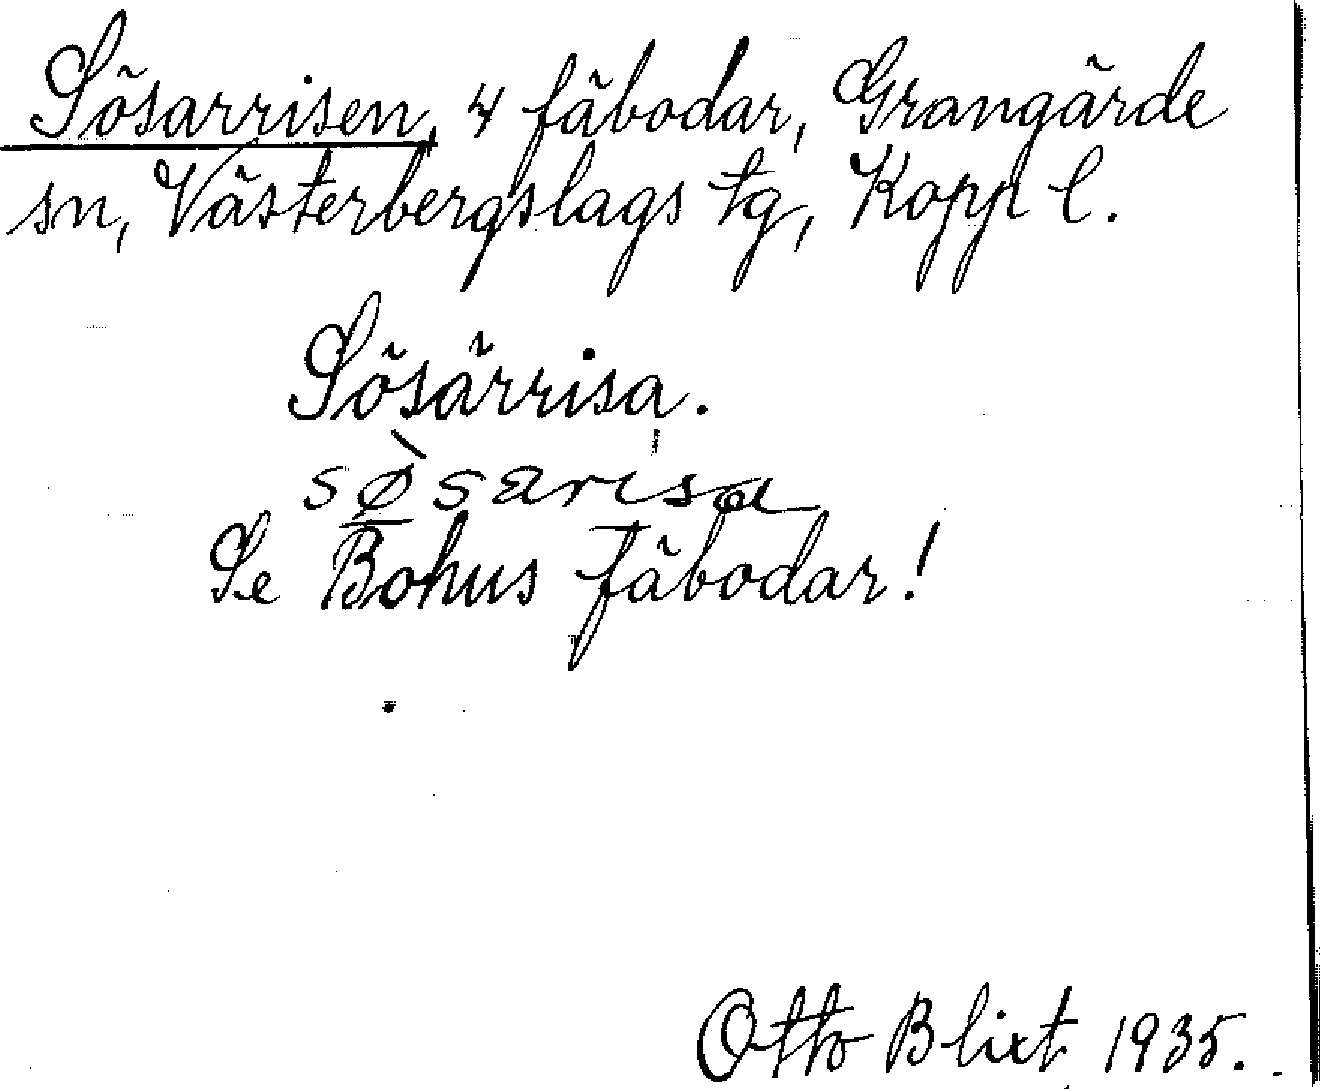 Sösarrisen, 4 fäbodar, Grangärde
sn, Västerbergslags tg, Kopp l.
Sösärrisa.
Se Bohus fäbodar!
Otto Blixt 1935.